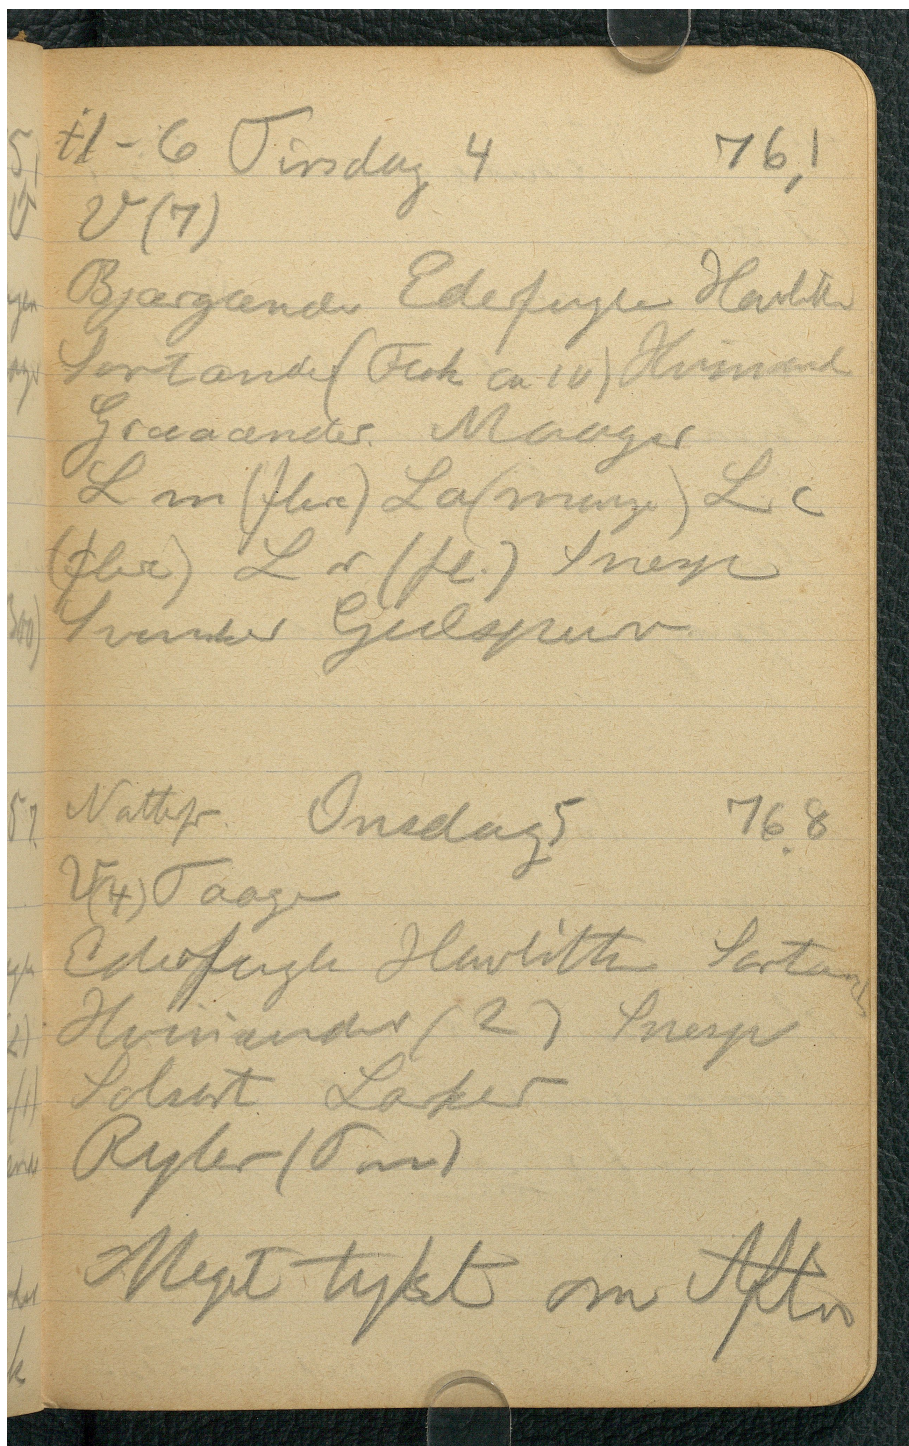 ÷1 - 6 Tirsdag 4 76,1
V (7)
Bjærgænder Ederfugle Havlitter
Sortænder (Flok ca 10) Hvinænd
Graaænder. Maager
L m (flere) L a (mange) L c
(flere) L r (fl.) Snesp
Svensker Gulspurv
Nattefr. Onsdag 5 76.8
V(4) Taage
Ederfugle Havlitter Sortænd
Hvinænder (2) Snesp
Solsort Lærker
Ryler (Tm)
Meget tykt om Aften